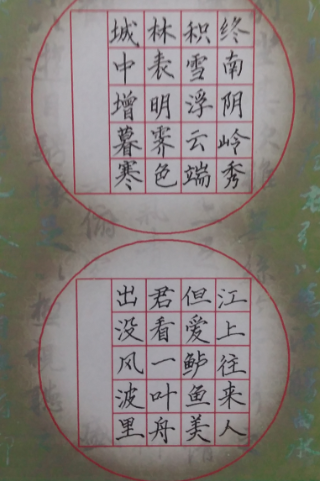 终南阴岭秀
积雪浮云端
林表明霁色
城中增暮寒
江上往来人
但爱鲈鱼美
君看一叶舟
出没风波里